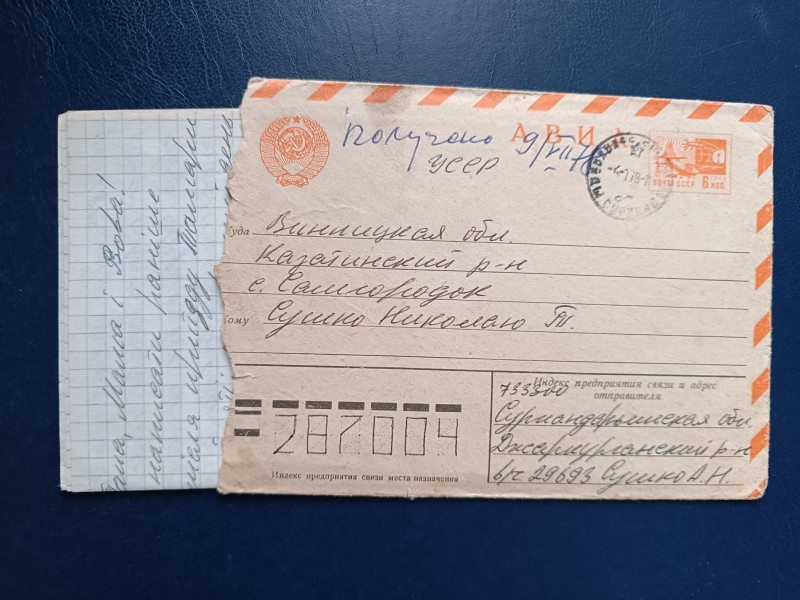 АВИА
Получено 9/VII 78
УССР
ПОЧТА СССР
6 КОП.
Куда Винницкая обл.
Казатинский р-н
с. Самгородок
Кому Сушко Николаю Т.
Индекс предприятия связи и адрес
отправителя
733300
Сурхандарьинская обл.
Джаркурганский р-н
в/ч 29693 Сушко А.Н.
287004
Индекс предприятия связи места назначения
Мама і Вова!
написати раніше
приїзду
день